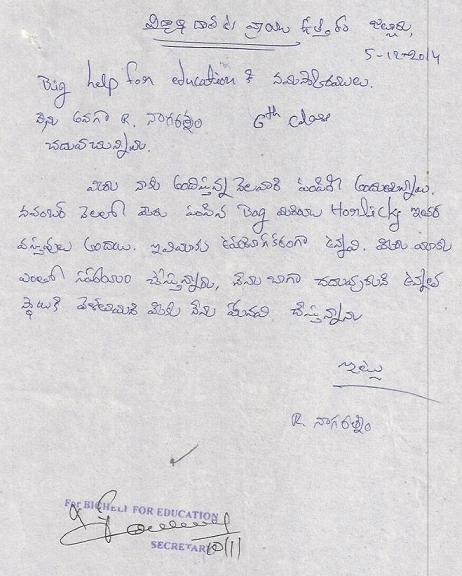 విద్యార్థి దాతకు వ్రాయు ఉత్తరం
5-12-2014
Big help for education కి నమస్కారములు.
నేను అనగా R. నాగరత్నం 6th class
చదువుచున్నాను.
మీరు నాకు అందిస్తున్న నెలవారి అందుతున్నాయి.
నవంబర్ నెలలో మీరు పంపిన Bag మరియు Horlicks ఇతర
వస్తువులు అందాయి. ఉపయోగకరంగా ఉన్నాయి. మీరు మాకు
ఎంతో సహాయం చేస్తున్నారు, నేను బాగా చదువుకుని ఉన్నత
స్థాయికి మీకు నేను చేస్తున్నాను
ఇట్లు
R. నాగరత్నం
For BIGHELP FOR EDUCATION
SECRETARY